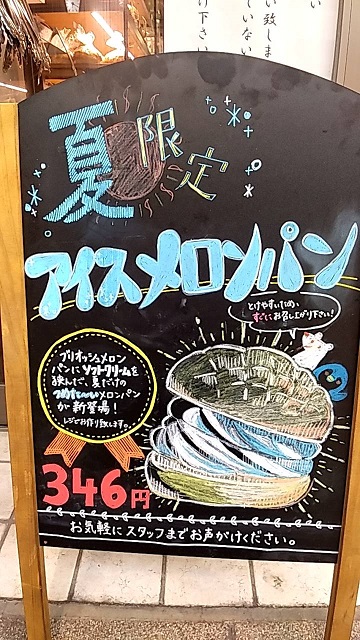 い
い致しま
ていない
け下さい
夏限定
アイスメロンパン
とけやすいため
すぐにお召し上がり下さい!
ブリオッシュメロン
パンにソフトクリームを
挟んで、夏だけの
つめた〜いメロンパン
が新登場!
レジでお作り致します。
346円
お気軽にスタッフまでお声がけください。